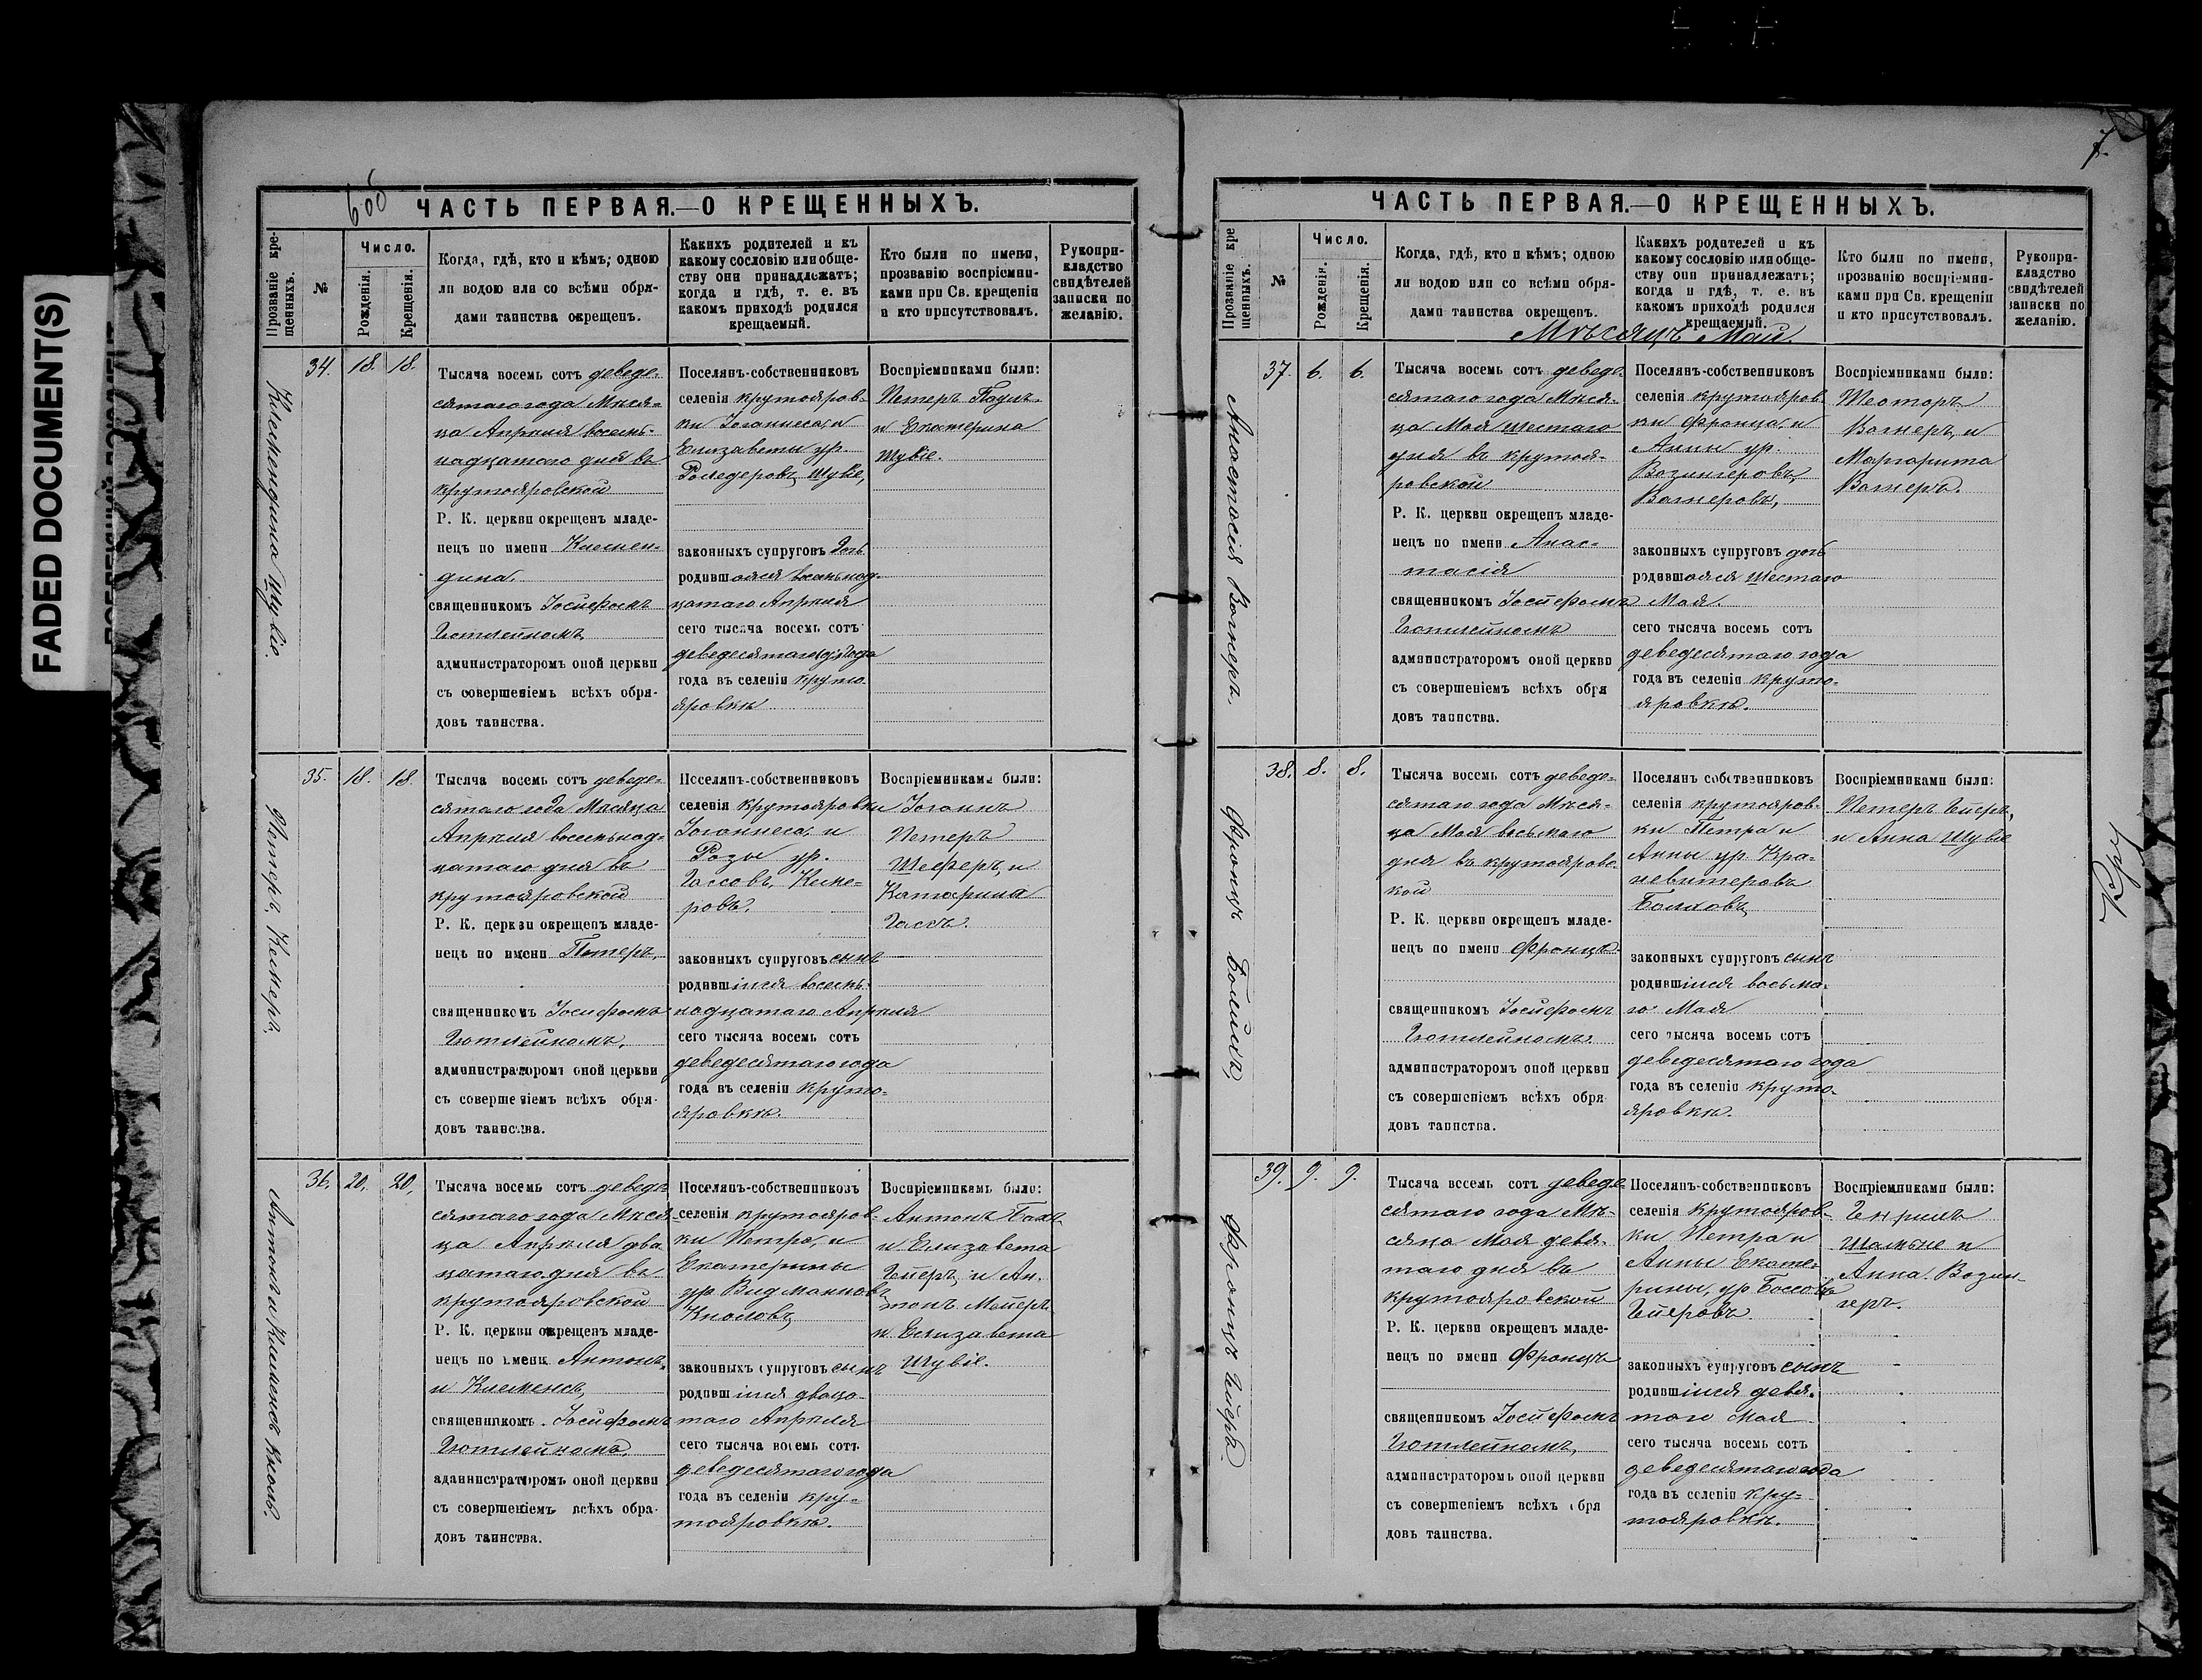 FADED DOCUMENT(S)
6 об
ЧАСТЬ ПЕРВАЯ.—О КРЕЩЕННЫХЪ.
Прозваніе кре-
щенныхъ.
№
Число.
Рожденія.
Крещенія.
Когда, гдѣ, кто и кѣмъ; одною
ли водою или со всѣми обря-
дами таинства окрещенъ.
Какихъ родителей и къ
какому сословію или обще-
ству они принадлежатъ;
когда и гдѣ, т. е. въ
какомъ приходѣ родился
крещаемый.
Кто были по имени,
прозванію воспріемни-
ками при Св. крещеніи
и кто присутствовалъ.
Рукопри-
кладство
свидѣтелей
записки по
желанію.
Клементина Шувіе.
34. 18. 18.
Тысяча восемь сотъ деведе-
сятаго года Мѣся-
ца Апрѣля восемь-
надцатаго дня въ
крутояровской
Р. К. церкви окрещенъ младе-
нецъ по имени Клемен-
дина.
священникомъ Іосифомъ
Готлейномъ
администраторомъ оной церкви
съ совершеніемъ всѣхъ обря-
довъ таинства.
Поселянъ-собственниковъ
селенія крутояров-
ки Іоганнеса, и
Елизаветы ур.
Шувіе,
законныхъ супруговъ дочь
родившаяся восемьнад-
цатаго Апрѣля
сего тысяча восемь сотъ
деведесятаго года
года въ селеніи круто-
яровкѣ
Воспріемниками были:
Петеръ Паулъ
и Екатерина
Шувіе.
Петеръ Кемеръ.
35. 18. 18.
Тысяча восемь сотъ деведе-
сятаго года Мѣсяца
Апрѣля восемьнад-
цатаго дня въ
крутояровской
Р. К. церкви окрещенъ младе-
нецъ по имени Петеръ,
священникомъ Іосифомъ
Готлейномъ.
администраторомъ оной церкви
съ совершеніемъ всѣхъ обря-
довъ таинства.
Поселянъ-собственниковъ
селенія крутояровки
Іоганнеса, и
Розы ур.
Гассовъ, Кеме-
ровъ.
законныхъ супруговъ сынъ
родившійся восемь-
надцатаго Апрѣля
сего тысяча восемь сотъ
деведесятаго года
года въ селеніи круто-
яровкѣ.
Воспріемниками были:
Іоганнъ
Петеръ
Шеферъ, и
Катарина
Гассъ.
Антонъ и Клеменсъ Кноль.
36. 20. 20.
Тысяча восемь сотъ деведе-
сятаго года Мѣся-
ца Апрѣля два-
цатаго дня въ
крутояровской
Р. К. церкви окрещенъ младе-
нецъ по имени Антонъ,
и Клеменсъ,
священникомъ Іосифомъ
Готлейномъ,
администраторомъ оной церкви
съ совершеніемъ всѣхъ обря-
довъ таинства.
Поселянъ-собственниковъ
селенія крутояров-
ки Петра, и
Екатерины
ур Видмановъ
Кноловъ,
законныхъ супруговъ сынъ
родившійся двацо-
таго Апрѣля
сего тысяча восемь сотъ
деведесятаго года
года въ селеніи кру-
тояровкѣ.
Воспріемникамъ были:
Антонъ
и Елизавета
Гейеръ, и Ан-
тонъ Мейеръ
и Елизавета
Шувіе.
7.
ЧАСТЬ ПЕРВАЯ.—О КРЕЩЕННЫХЪ.
Прозваніе кре
щенныхъ.
№
Число.
Рожденія.
Крещенія.
Когда, гдѣ, кто и кѣмъ; одною
ли водою или со всѣми обря-
дами таинства окрещенъ.
Какихъ родителей и къ
какому сословію или обще-
ству они принадлежатъ;
когда и гдѣ, т. е. въ
какомъ приходѣ родился
крещаемый.
Кто были по имени,
прозванію воспріемни-
ками при Св. крещеніи
и кто присутствовалъ.
Рукопри-
кладство
свидѣтелей
записки по
желанію.
Мѣсяцъ Май.
Анастасія Вагнеръ.
37. 6. 6.
Тысяча восемь сотъ деведе-
сятаго года Мѣся-
ца Мая шестаго
дня въ крутоя-
ровской
Р. К. церкви окрещенъ младе-
нецъ по имени Анас-
тасія
священникомъ Іосифомъ
Готлейномъ
администраторомъ оной церкви
съ совершеніемъ всѣхъ обря
довъ таинства.
Поселянъ-собственниковъ
селенія крутояров-
ки Франца, и
Анны ур.
Возингеровъ,
Вагнеровъ,
законныхъ супруговъ дочь
родившаяся шестаго
Мая.
сего тысяча восемь сотъ
деведесятаго года
года въ селеніи круто-
яровкѣ.
Воспріемниками были:
Вагнеръ, и
Маргарита
Вагнеръ.
Францъ Бомихъ,
38. 8. 8.
Тысяча восемь сотъ деведе-
сятаго года Мѣся-
ца Мая восьмаго
дня въ крутояровс-
кой
Р. К. церкви окрещенъ младе-
нецъ по имени Францъ
священникомъ Іосифомъ
Готлейномъ.
администраторомъ оной церкви
съ совершеніемъ всѣхъ обря
довъ таинства.
Поселянъ собственниковъ
селенія крутояров-
ки Петра и
Анны ур Кра-
невитеровъ
законныхъ супруговъ сынъ
родившійся восьма-
го Мая
сего тысяча восемь сотъ
деведесятаго года
года въ селеніи круто-
яровкѣ.
Воспріемниками были:
Петеръ Гейеръ,
и Анна Шувіе
Францъ Гейеръ
39. 9. 9.
Тысяча восемь сотъ деведе-
сятаго года Мѣ-
сяца Мая девя-
таго дня въ
крутояровской
Р. К. церкви окрещенъ младе-
нецъ по имени Францъ
священникомъ Іосифомъ
Готлейномъ,
администраторомъ оной церкви
съ совершеніемъ всѣхъ обря
довъ таинства.
Поселянъ-собственниковъ
селенія крутояров-
ки Петра и
Анны Екате-
рины, ур
Гейеровъ.
законныхъ супруговъ сынъ
родившійся девя-
таго Мая
сего тысяча восемь сотъ
деведесятаго года
года въ селеніи кру-
тояровкѣ.
Воспріемниками были:
Шамьне и
Анна Возин-
геръ.